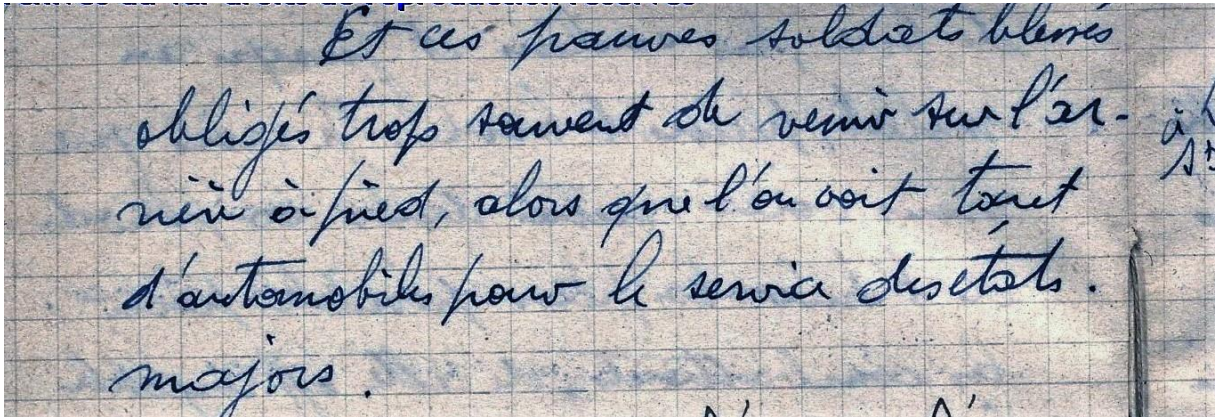 Et ces pauvres soldats blessés
obligés trop souvent de venir sur l'ar-
rière à pied, alors que l'on voit tant
d'automobiles pour le service des états.
majors.